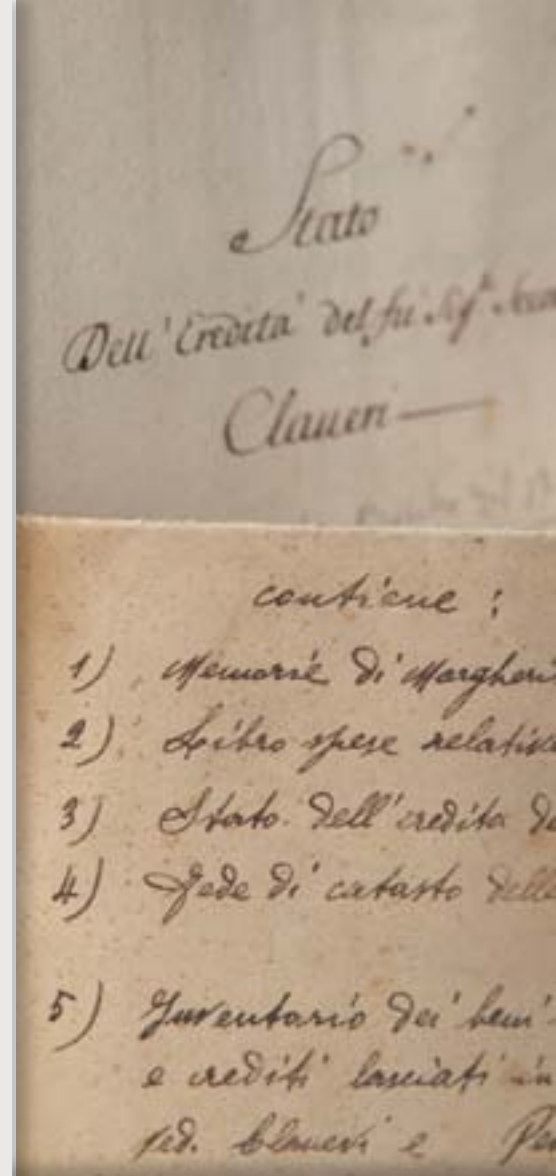 Stato
Dell' Eredita' del fu Sigr
Claueri
contiene :
1) Memorie di Margheri
2) Libro spese relativ
3) Stato dell'eredita d
4) Fede di catasto dell
5) Inventario dei beni
e crediti lasciati in
red. e